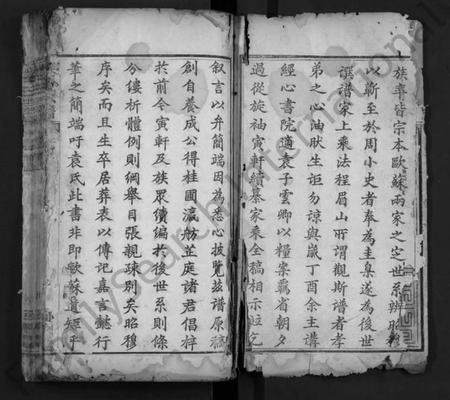 族尋皆宗本歐蘇兩家之定世系辨昭穆
以蘄至於周小史者奉為圭臬遂為後世
譔譜家上乘法程眉山所謂觀斯譜者孝
弟之心油肰生詎勿諒與歲丁酉余主講
經心書院適袁子雲卿以糧案羈省朝夕
過從旋袖寅軒續纂家乘全稿相示并乞
叙言以弁簡端因為悉心披覽茲譜原稿
創自養成公得桂圃瀛舫芷庭諸君倡梓
於前今寅軒及族衆續編於後世系則條
分縷析體例則綱舉目張親疎別矣昭穆
序矣而且生卒居葬表以傳記嘉言懿行
筆之簡端吁袁氏此書非即歐蘇遺矩乎
FamilySearch International